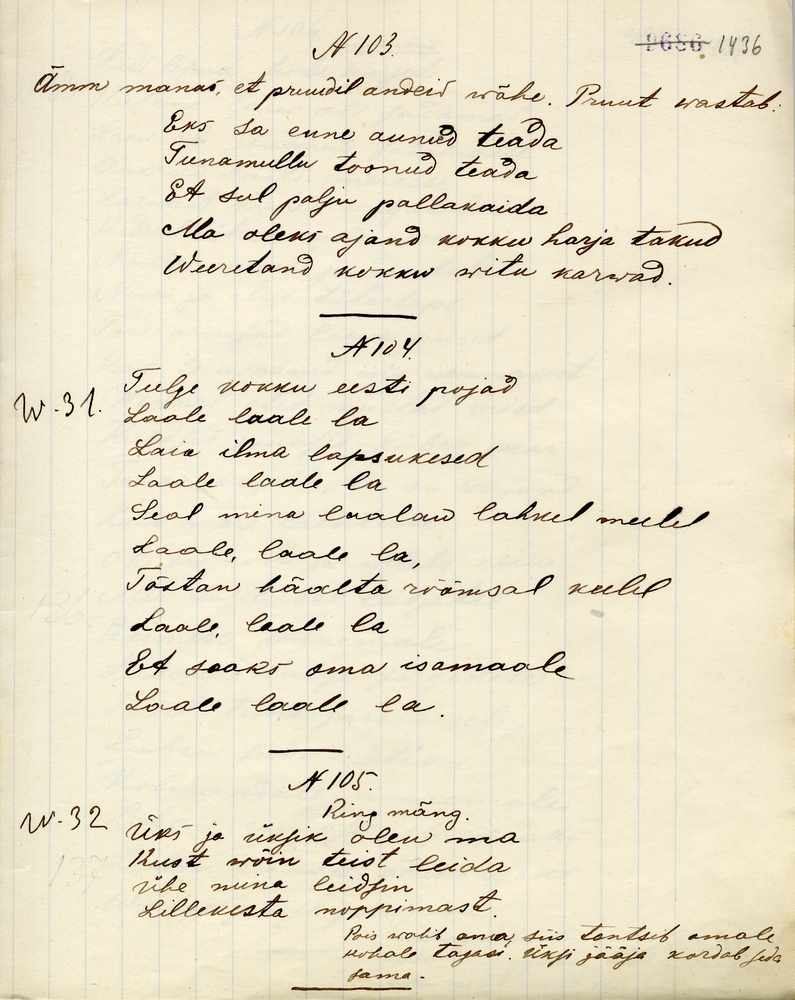 N 103.
9686 1436
Ämm manas, et pruudil andeid wähe. Pruut wastab:
Eks sa enne aunud teada
Tunamullu toonud teada
Et sul palju pallakaida
Ma oleks ajand kokku harja takud
Weeretand kokku witu karwad.
N 104.
W. 31.
Tulge kokku eesti pojad
Laale laale la
Laia ilma lapsukesed
Laale laale la
Seal mina laalan lahkel meelel
Laale, laale la,
Tõstan häälta rõõmsal keelel
Laale, laale la
Et saaks oma isamaale
Laale laale la.
N 105.
Ring mäng.
W. 32
Üks ja üksik olen ma
Kust wõin teist leida
Ühe mina leidsin
Lillekesta noppimast.
Pois walib oma, siis tantsib omale
kohale tagasi. Üksi jääja kordab seda
sama.